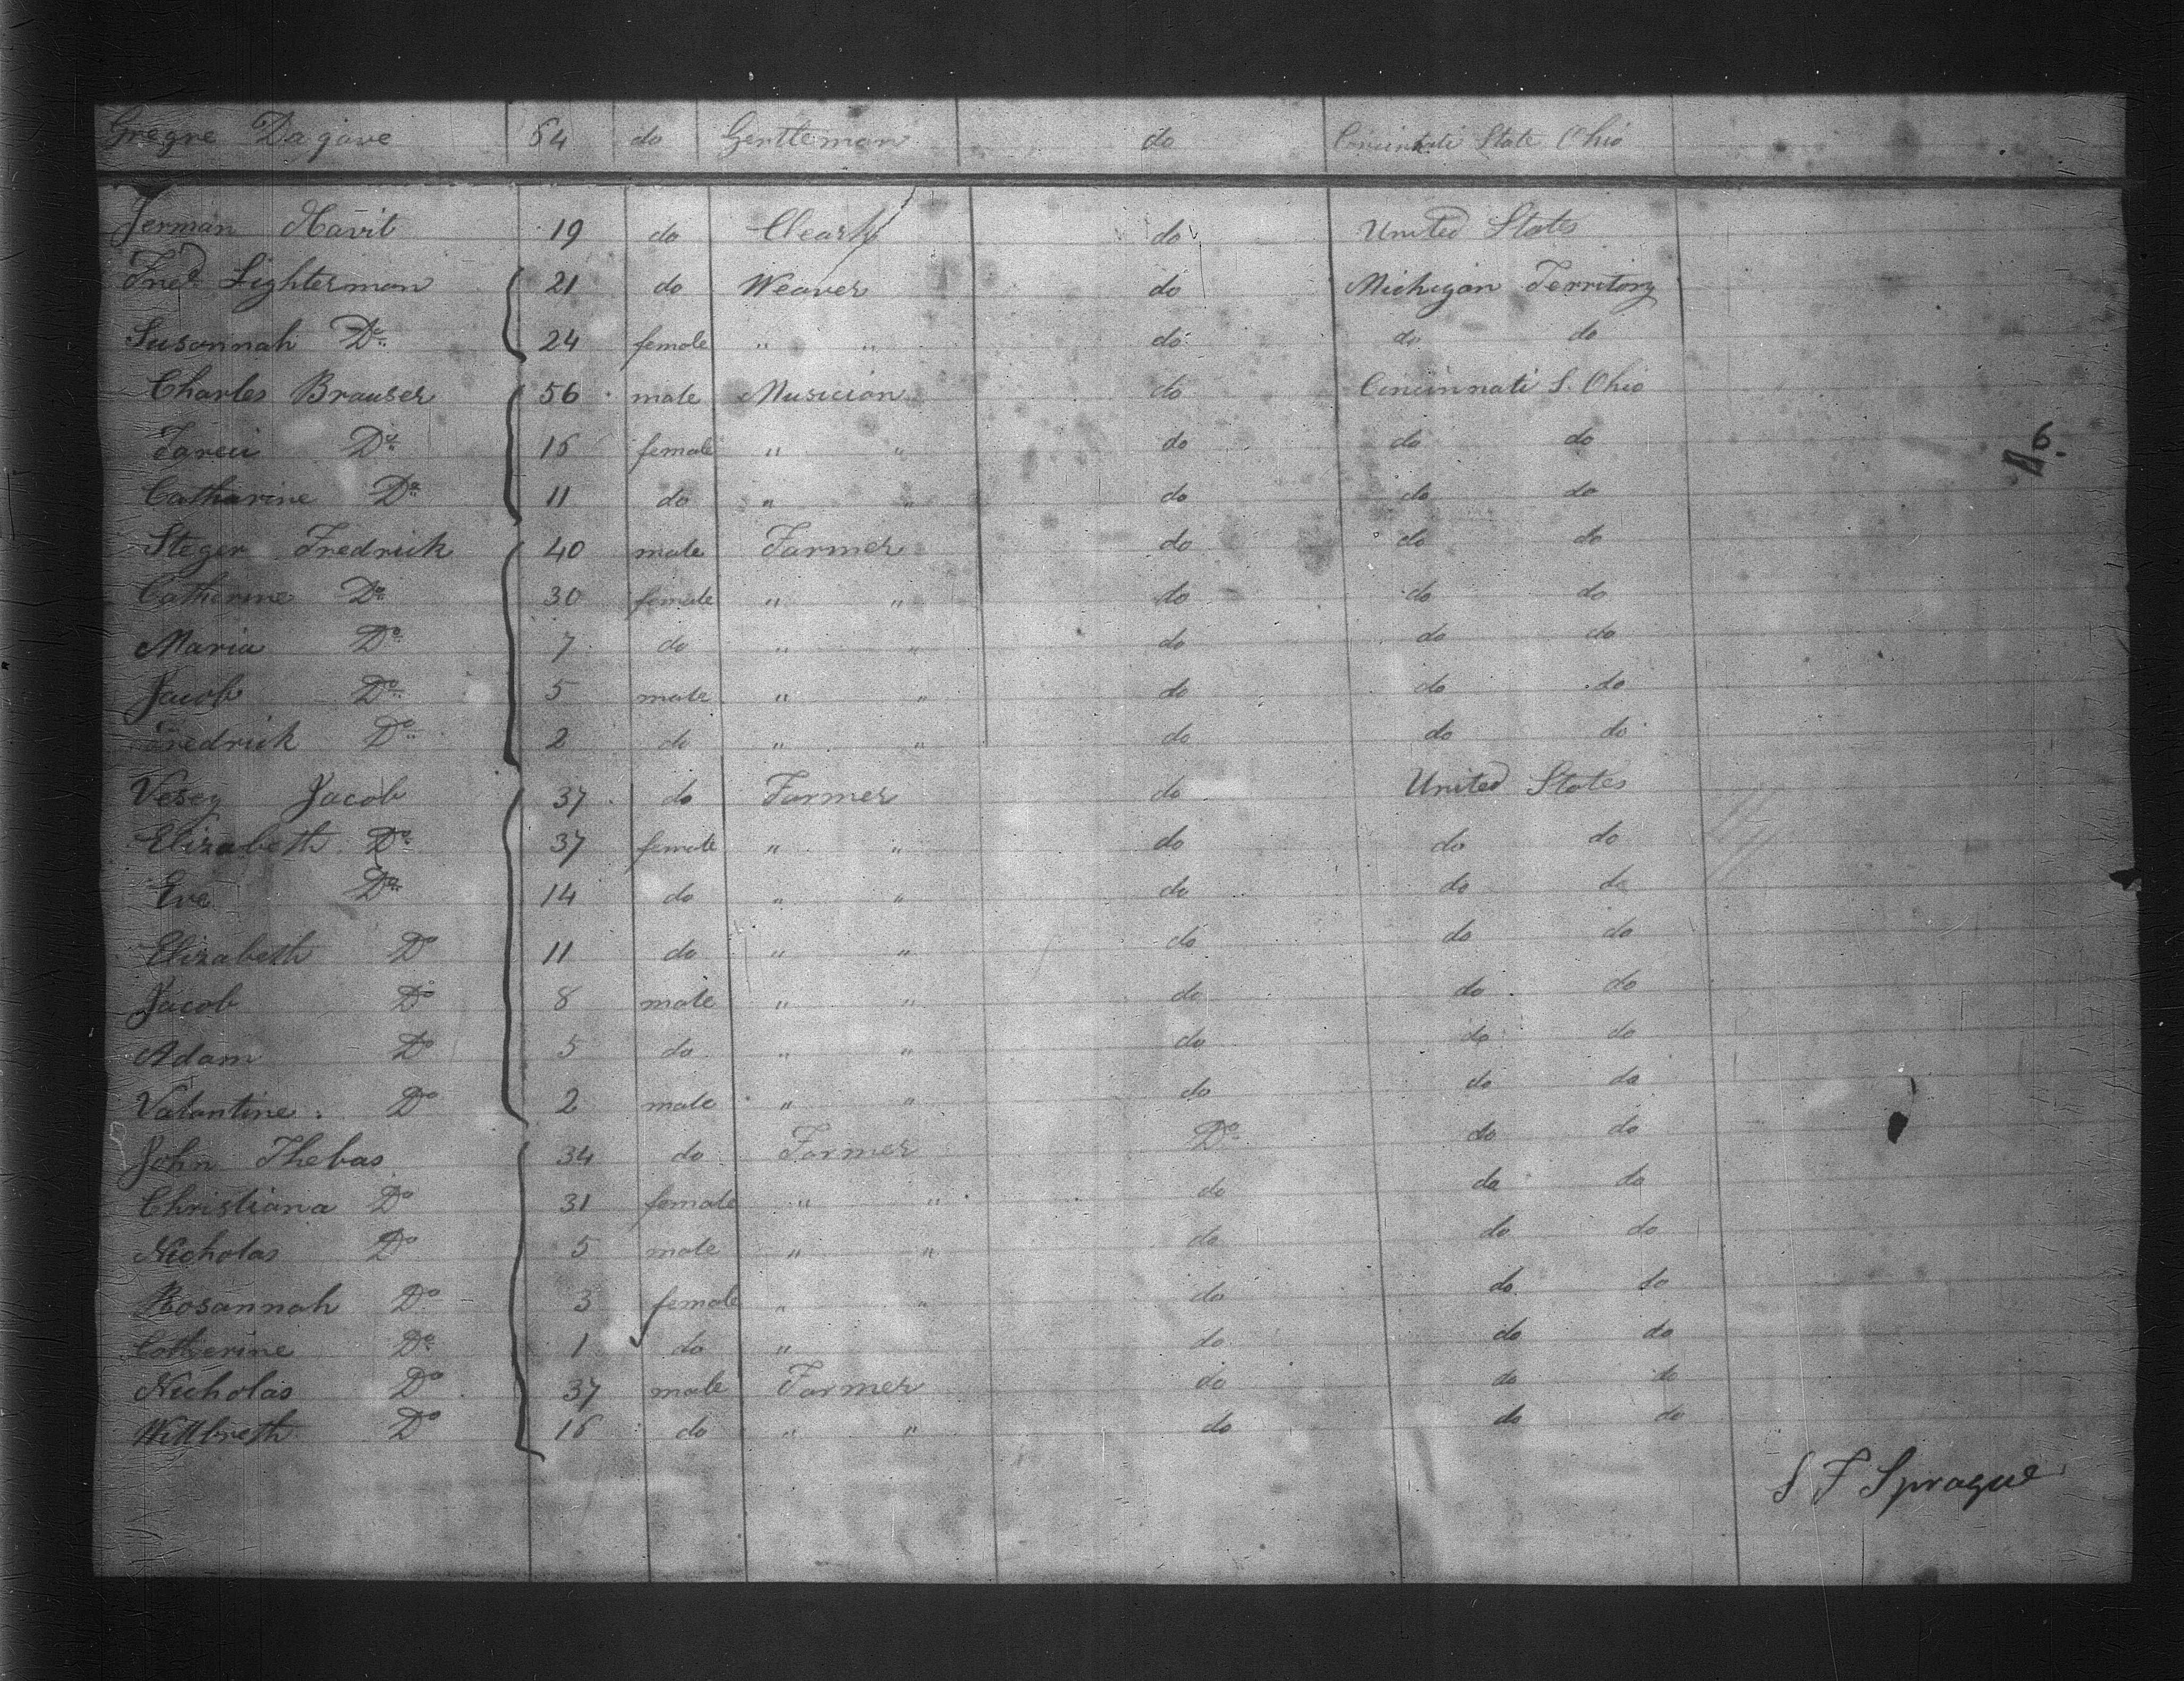 Gregre Dagave 54 do Gentleman do Cincinati State Ohio
Jerman Havit 19 do Cleark do United States
Fred Lighterman 21 do Weaver do Michigan Territory
Susannah Do 24 female " " do do do
Charles Brauser 56 male Musician do Cincinnati S. Ohio
Do 16 female " " do do do
Catharine Do 11 do " " do do do
Steger Fredrick 40 male Farmer do do do
Catherine Do 30 female " " do do do
Maria Do 7 do " " do do do
Jacob Do 5 male " " do do do
Fredrick Do 2 do " " do do do
Vesey Jacob 37 do Farmer do United States
Elizabeth Do 37 female " " do do do
Eve Do 14 do " " do do do
Elizabeth Do 11 do " " do do do
Jacob Do 8 male " " do do do
Adam Do 5 do " " do do do
Valantine Do 2 male " " do do do
John Thebas 34 do Farmer Do do do
Christiana Do 31 female " " do do do
Nicholas Do 5 male " " do do do
Rosannah Do 3 female " " do do do
Catherine Do 1 do " do do do
Nicholas Do 37 male Farmer do do do
Do 16 do " " do do do
S F Sprague